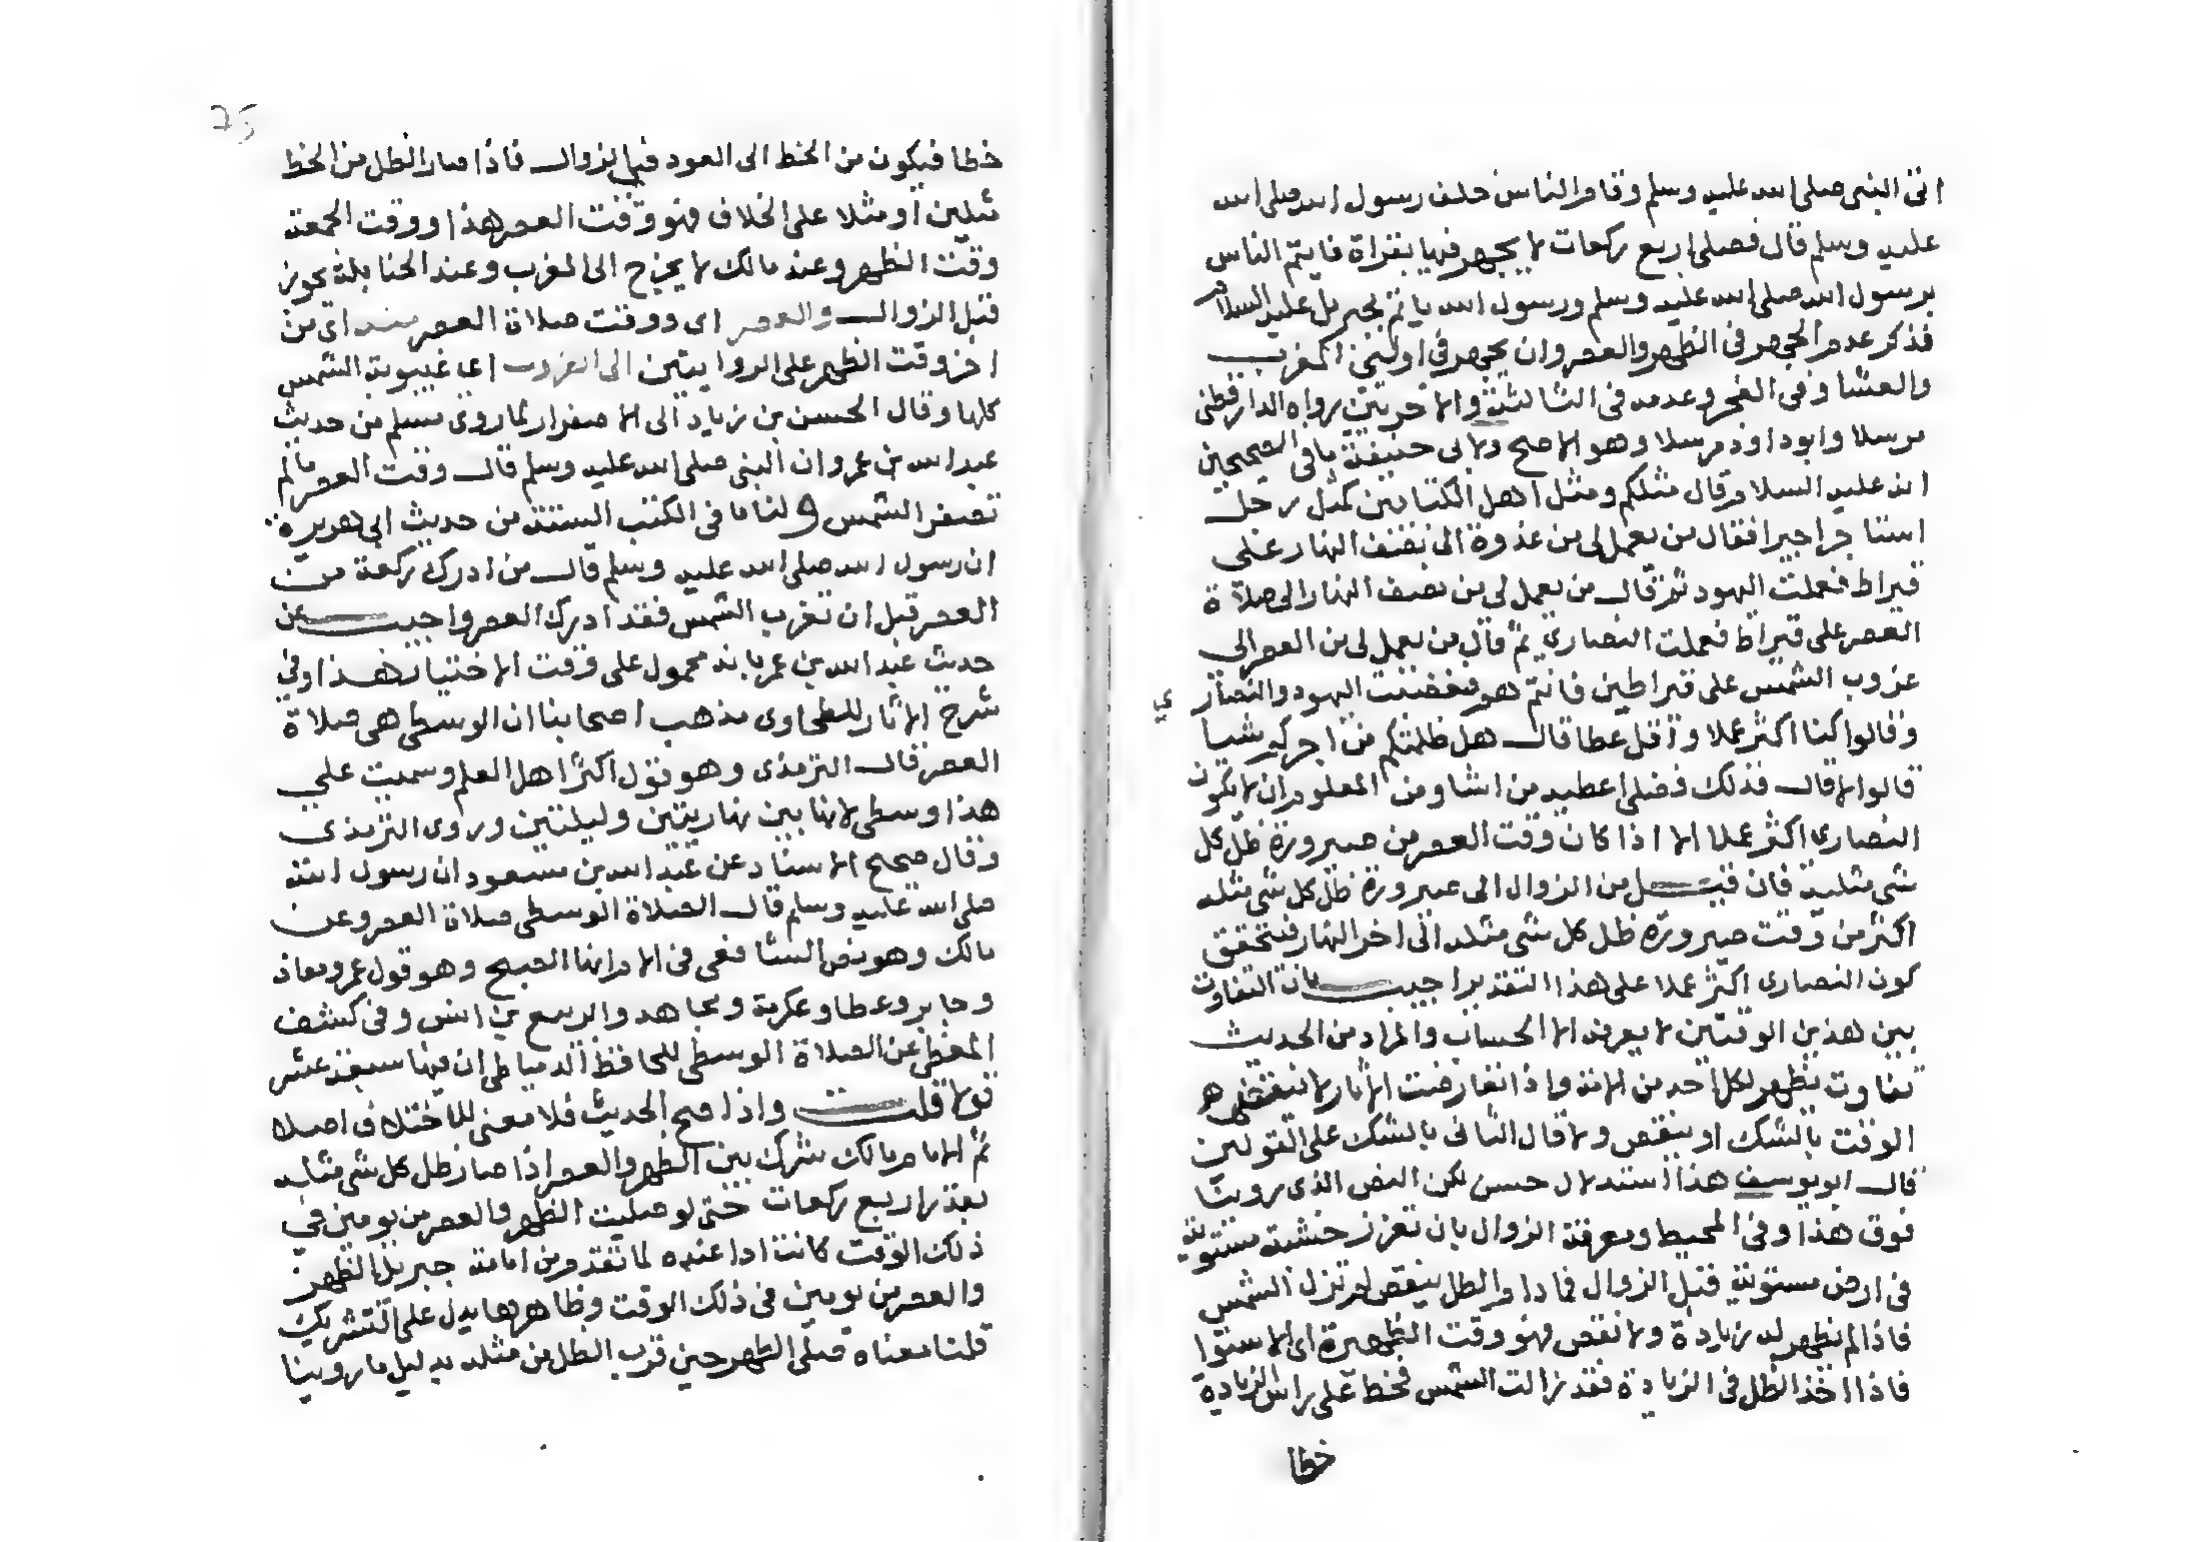 اتى النبي صلى الله عليه وسلم وقام الناس خلف رسول الله صلى الله
عليه وسلم قال فصلى اربع ركعات لا يجهر فيها بقراة فايتم الناس
برسول الله صلى الله عليه وسلم ورسول الله ياتم بجبريل عليه السلام
فذكر عدم الجهر في الظهر والعصر وان يجهر في اوليتي المغرب
والعشا وفي الفجر وعدمه في الثالثة والاخريتين رواه الدارقطني
مرسلا وابو داود مرسلا وهو الاصح ولابي حنيفة ما في الصحيحين
انه عليه السلام قال مثلكم ومثل اهل الكتابين كمثل رجل
استاجر اجيرا فقال من يعمل لي من غدوة الى نصف النهار على
قيراط فعملت اليهود ثم قال من يعمل لي من نصف النهار الى صلاة
العصر على قيراط فعملت النصاري ثم قال من يعمل لي من العصر الى
غروب الشمس على قيراطين فانتم هم فغضبت اليهود والنصار ي
وقالوا كنا اكثر عملا واقل عطا قال هل ظلمتكم من اجركم شيا
قالوا لا قال فذلك فضلي اعطيه من اشا ومن المعلوم ان لا يكون
النصارى اكثر عملا الا اذا كان وقت العصر من صيرورة ظل كل
شي مثليه فان قيل من الزوال الى صيرورة ظل كل شي مثله
اكثر من وقت صيرورة ظل كل شي مثله الى اخر النهار فتحقق
كون النصارى اكثر عملا على هذا التقدير اجيب بان التفاوت
بين هذين الوقتين لا يعرفه الا الحساب والمراد من الحديث
تفاوت يظهر لكل احد من الامة واذا تعارضت الاثار لا ينقضي
الوقت بالشك او ينقص ولا قال الثاني بالشك على القولين
قال ابو يوسف هذا استدلال حسن لكن النص الذي روينا
فوق هذا وفي المحيط ومعرفة الزوال بان تغرز خشبة مستوية
في ارض مستوية قبل الزوال فما دام الظل ينقص لم تزل الشمس
فاذا لم يظهر له زيادة ولا نقص فهو وقت الظهيرة اى الاستوا
فاذا اخذ الظل في الزيادة فقد زالت الشمس فخط على راس الزيادة
خطا
25
خطا فيكون من الخط الى العود في الزوال فاذا صار الظل من الخط
مثلين او مثلا على الخلاف فهو وقت العصر هذا ووقت الجمعة
وقت الظهر وعند مالك لا يخرج الى المغرب وعند الحنابلة يجوز
قبل الزوال والعصر اى ووقت صلاة العصر منه اي من
اخر وقت الظهر على الروايتين الى الغروب اى غيبوبة الشمس
كلها وقال الحسن بن زياد الى الاصفرار لما روى مسلم من حديث
عبد الله بن عمرو ان النبي صلى الله عليه وسلم قال وقت العصر ما لم
تصفر الشمس ولنا ما في الكتب الستة من حديث ابي هريرة
ان رسول الله صلى الله عليه وسلم قال من ادرك ركعة من
العصر قبل ان تغرب الشمس فقد ادرك العصر واجيب عن
حديث عبد الله بن عمر بانه محمول على وقت الاختيار هذا وفي
شرح الاثار للطحاوى مذهب اصحابنا ان الوسطى هي صلاة
العصر قال الترمذى وهو قول اكثر اهل العلم وسميت على
هذا وسطى لانها بين نهاريتين وليلتين وروى الترمذى
وقال صحيح الاسناد عن عبد الله بن مسعود ان رسول الله
صلى الله عليه وسلم قال الصلاة الوسطى صلاة العصر وعن
مالك وهو نص الشافعي في الام انها الصبح وهو قول عمر ومعاذ
وجابر وعطا وعكرمة ومجاهد والربيع بن انس وفي كشف
المغطى عن الصلاة الوسطى للحافظ الدمياطي ان فيها سبعة عشر
قولا قلت واذا صح الحديث فلا معنى للاختلاف اصلا
ثم الامام مالك شرك بين الظهر والعصر اذا صار ظل كل شي مثله
بقدر اربع ركعات حتى لو صليت الظهر والعصر من يومين في
ذلك الوقت كانت ادا عنده لما تقدم من امامة جبريل الظهر
والعصر من يومين في ذلك الوقت وظاهرها يدل على التشريك
قلنا معناه صلى الظهر حين قرب الظل من مثله بدليل ما روينا